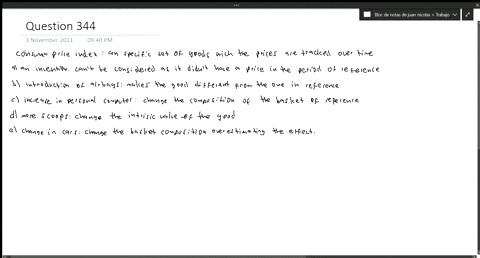 Bloc de notas de juan nicolas » Trabajo
Question 344
3 November 2021 09:40 PM
Consumer price index: an specific set of goods wich the prices are tracked over time
a) an invention can't be considered as it didn't have a price in the period of reference
b) introduction of airbags: makes the good different from the one in reference
c) increase in personal computer: change the composition of the basket of reference
d) more scoops: change the intrisic value of the good
e) change in cars: change the basket composition overestimating the effect.